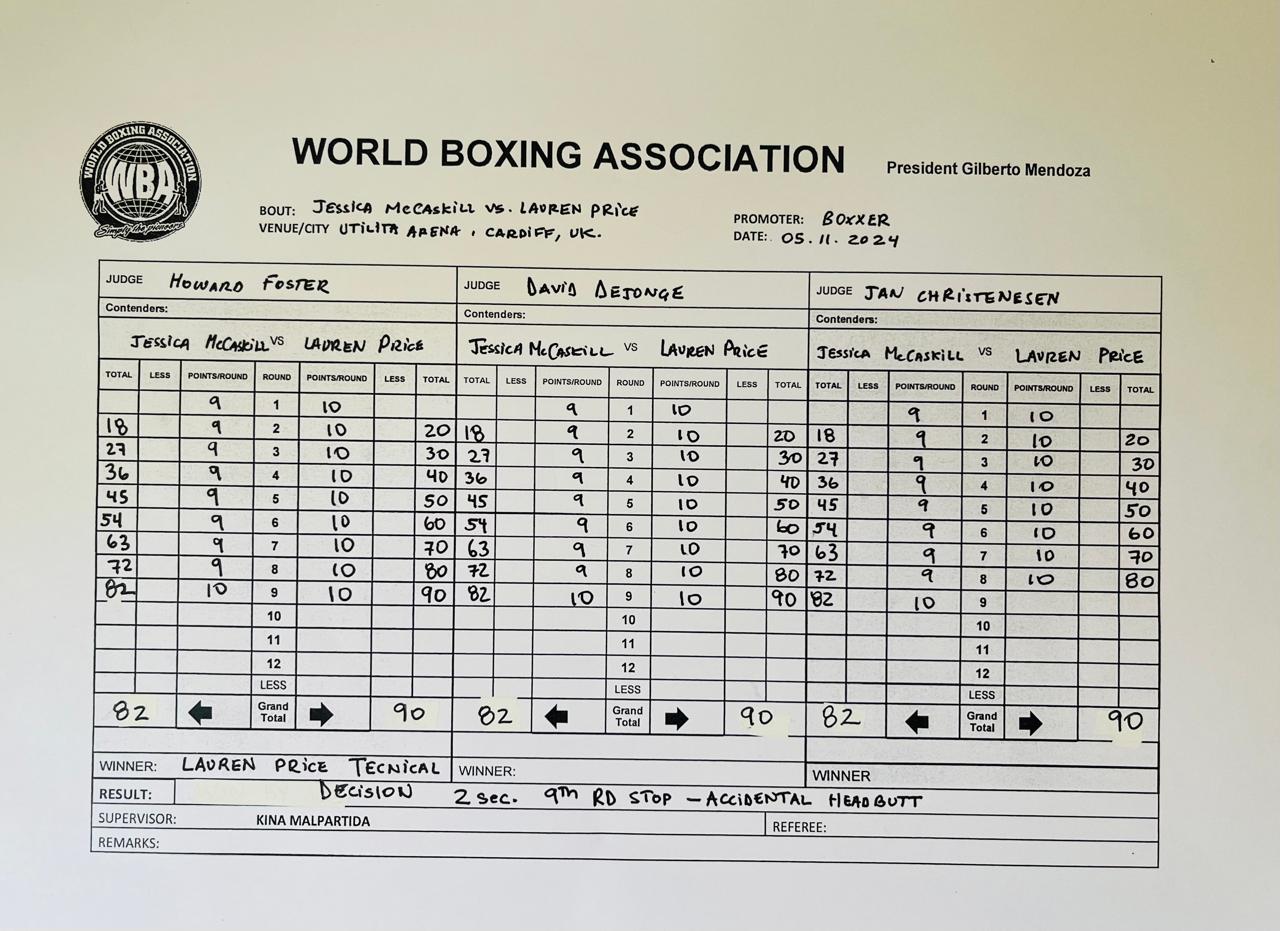 WORLD BOXING ASSOCIATION
WBA
Simply the pioneers
WORLD BOXING ASSOCIATION President Gilberto Mendoza
BOUT: JESSICA McCASKILL VS. LAUREN PRICE PROMOTER: BOXXER
VENUE/CITY UTILITA ARENA, CARDIFF, UK. DATE: 05.11.2024
JUDGE HOWARD FOSTER JUDGE DAVID DEJONGE JUDGE JAN CHRISTENESEN
Contenders: Contenders: Contenders:
JESSICA McCASKILL VS LAUREN PRICE JESSICA McCASKILL VS LAUREN PRICE JESSICA McCASKILL VS LAUREN PRICE
TOTAL LESS POINTS/ROUND ROUND POINTS/ROUND LESS TOTAL TOTAL LESS POINTS/ROUND ROUND POINTS/ROUND LESS TOTAL TOTAL LESS POINTS/ROUND ROUND POINTS/ROUND LESS TOTAL
9 1 10 9 1 10 9 1 10
18 9 2 10 20 18 9 2 10 20 18 9 2 10 20
27 9 3 10 30 27 9 3 10 30 27 9 3 10 30
36 9 4 10 40 36 9 4 10 40 36 9 4 10 40
45 9 5 10 50 45 9 5 10 50 45 9 5 10 50
54 9 6 10 60 54 9 6 10 60 54 9 6 10 60
63 9 7 10 70 63 9 7 10 70 63 9 7 10 70
72 9 8 10 80 72 9 8 10 80 72 9 8 10 80
82 10 9 10 90 82 10 9 10 90 82 10 9
10 10 10
11 11 11
12 12 12
LESS LESS LESS
82 Grand Total 90 82 Grand Total 90 82 Grand Total 90
WINNER: LAUREN PRICE TECNICAL WINNER: WINNER
RESULT: DECISION 2 SEC. 9TH RD STOP - ACCIDENTAL HEADBUTT
SUPERVISOR: KINA MALPARTIDA REFEREE:
REMARKS: